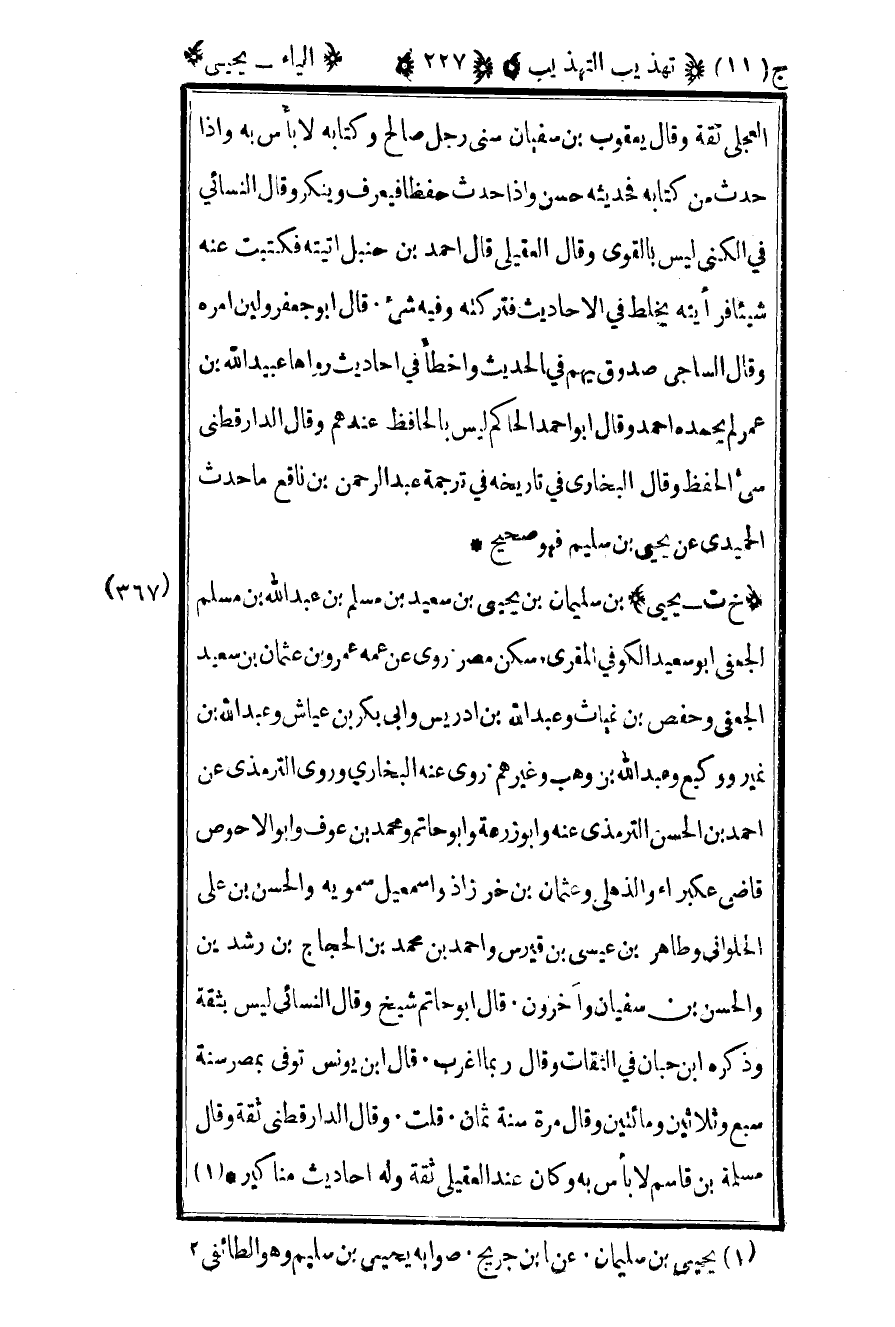 ج (١١) ﴿ تهذيب التهذيب ﴾ ﴿ ٢٢٧ ﴾ ﴿ الياء ـ يحيى ﴾
العجلى ثقة وقال يعقوب بن سفيان سنى رجل صالح وكتابه لا بأس به واذا
حدث من كتابه فحديثه حسن واذا حدث حفظا فيعرف وينكر وقال النسائي
في الكنى ليس بالقوى وقال العقيلى قال احمد بن حنبل اتيته فكتبت عنه
شيئا فرأيته يخلط في الاحاديث فتركته وفيه شئ · قال ابو جعفر ولين امره
وقال الساجى صدوق يهم في الحديث واخطأ في احاديث رواها عبيد الله بن
عمر لم يحمده احمد وقال ابو احمد الحاكم ليس بالحافظ عندهم وقال الدارقطنى
سئ الحفظ وقال البخارى في تاريخه في ترجمة عبد الرحمن بن نافع ما حدث
الحميدى عن يحيى بن سليم فهو صحيح *
﴿ خ ت ـ يحيى ﴾ بن سليمان بن يحيى بن سعيد بن مسلم بن عبد الله بن مسلم (٣٦٧)
الجعفى ابو سعيد الكوفي المقرىء سكن مصر · روى عن عمه عمرو بن عثمان بن سعيد
الجعفى وحفص بن غياث وعبد الله بن ادريس وابى بكر بن عياش وعبد الله بن
نمير ووكيع وعبد الله بن وهب وغيرهم · روى عنه البخاري وروى الترمذى عن
احمد بن الحسن الترمذى عنه وابو زرعة وابو حاتم ومحمد بن عوف وابو الاحوص
قاضى عكبراء والذهلى وعثمان بن خرزاذ واسمعيل سمويه والحسن بن على
الحلوانى وطاهر بن عيسى بن قيرس واحمد بن محمد بن الحجاج بن رشدين
والحسن بن سفيان وآخرون · قال ابو حاتم شيخ وقال النسائى ليس بثقة
وذكره ابن حبان في الثقات وقال ربما اغرب · قال ابن يونس توفى بمصر سنة
سبع وثلاثين ومائتين وقال مرة سنة ثمان · قلت · وقال الدارقطنى ثقة وقال
مسلمة بن قاسم لا بأس به وكان عند العقيلى ثقة وله احاديث مناكير * (١)
(١) يحيى بن سليمان · عن ابن جريج · صوابه يحيى بن سليم وهو الطائفى ٢